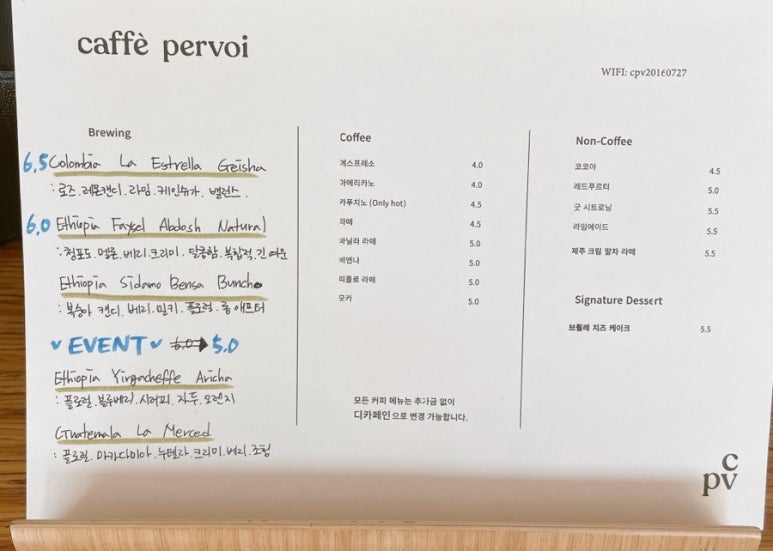 caffè pervoi
WIFI: cpv20160727
Brewing
6.5 Colombia La Estrella Geisha
: 로즈. 레몬캔디. 라임. 케인슈가. 밸런스.
6.0 Ethiopia Faysel Abdosh Natural
: 청포도. 멜론. 베리. 크리미. 달콤함. 복합적. 긴 여운
Ethiopia Sidamo Bensa Buncho
: 복숭아 캔디. 베리. 밀키. 플로럴. 롱 애프터
EVENT 6.0 → 5.0
Ethiopia Yirgacheffe Aricha
: 플로럴. 블루베리. 시러피. 자두. 오렌지
Guatemala La Merced
: 플로럴. 마카다미아. 누텔라. 크리미. 베리. 조청
Coffee
에스프레소 4.0
아메리카노 4.0
카푸치노 (Only hot) 4.5
라떼 4.5
바닐라 라떼 5.0
비엔나 5.0
피콜로 라떼 5.0
모카 5.0
모든 커피 메뉴는 추가금 없이
디카페인 으로 변경 가능합니다.
Non-Coffee
코코아 4.5
레드푸르티 5.0
굿 시트로닝 5.5
라임에이드 5.5
제주 크림 말차 라떼 5.5
Signature Dessert
브륄레 치즈 케이크 5.5
c
pv